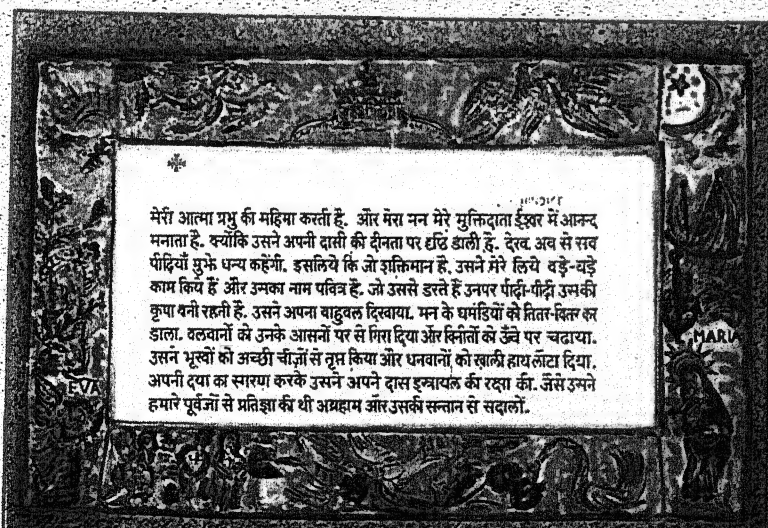 मेरी आत्मा प्रभु की महिमा करती है. और मेरा मन मेरे मुक्तिदाता ईश्वर में आनन्द
मनाता है. क्योंकि उसने अपनी दासी की दीनता पर दृष्टि डाली है. देख अब से सब
पीढ़ियाँ मुझे धन्य कहेंगी. इसलिये कि जो शक्तिमान है. उसने मेरे लिये बड़े-बड़े
काम किये हैं और उसका नाम पवित्र है. जो उससे डरते हैं उनपर पीढ़ी-पीढ़ी उसकी
कृपा बनी रहती है. उसने अपना बाहुबल दिखाया. मन के घमंडियों को तितर-बितर कर
डाला. बलवानों को उनके आसनों पर से गिरा दिया और विनीतों को ऊँचे पर चढाया.
उसने भूखों को अच्छी चीज़ों से तृप्त किया और धनवानों को खाली हाथ लौटा दिया.
अपनी दया का स्मरण करके उसने अपने दास इस्रायल की रक्षा की. जैसे उसने
हमारे पूर्वजों से प्रतिज्ञा की थी अब्रहाम और उसकी सन्तान से सदालों.
EVA
MARIA